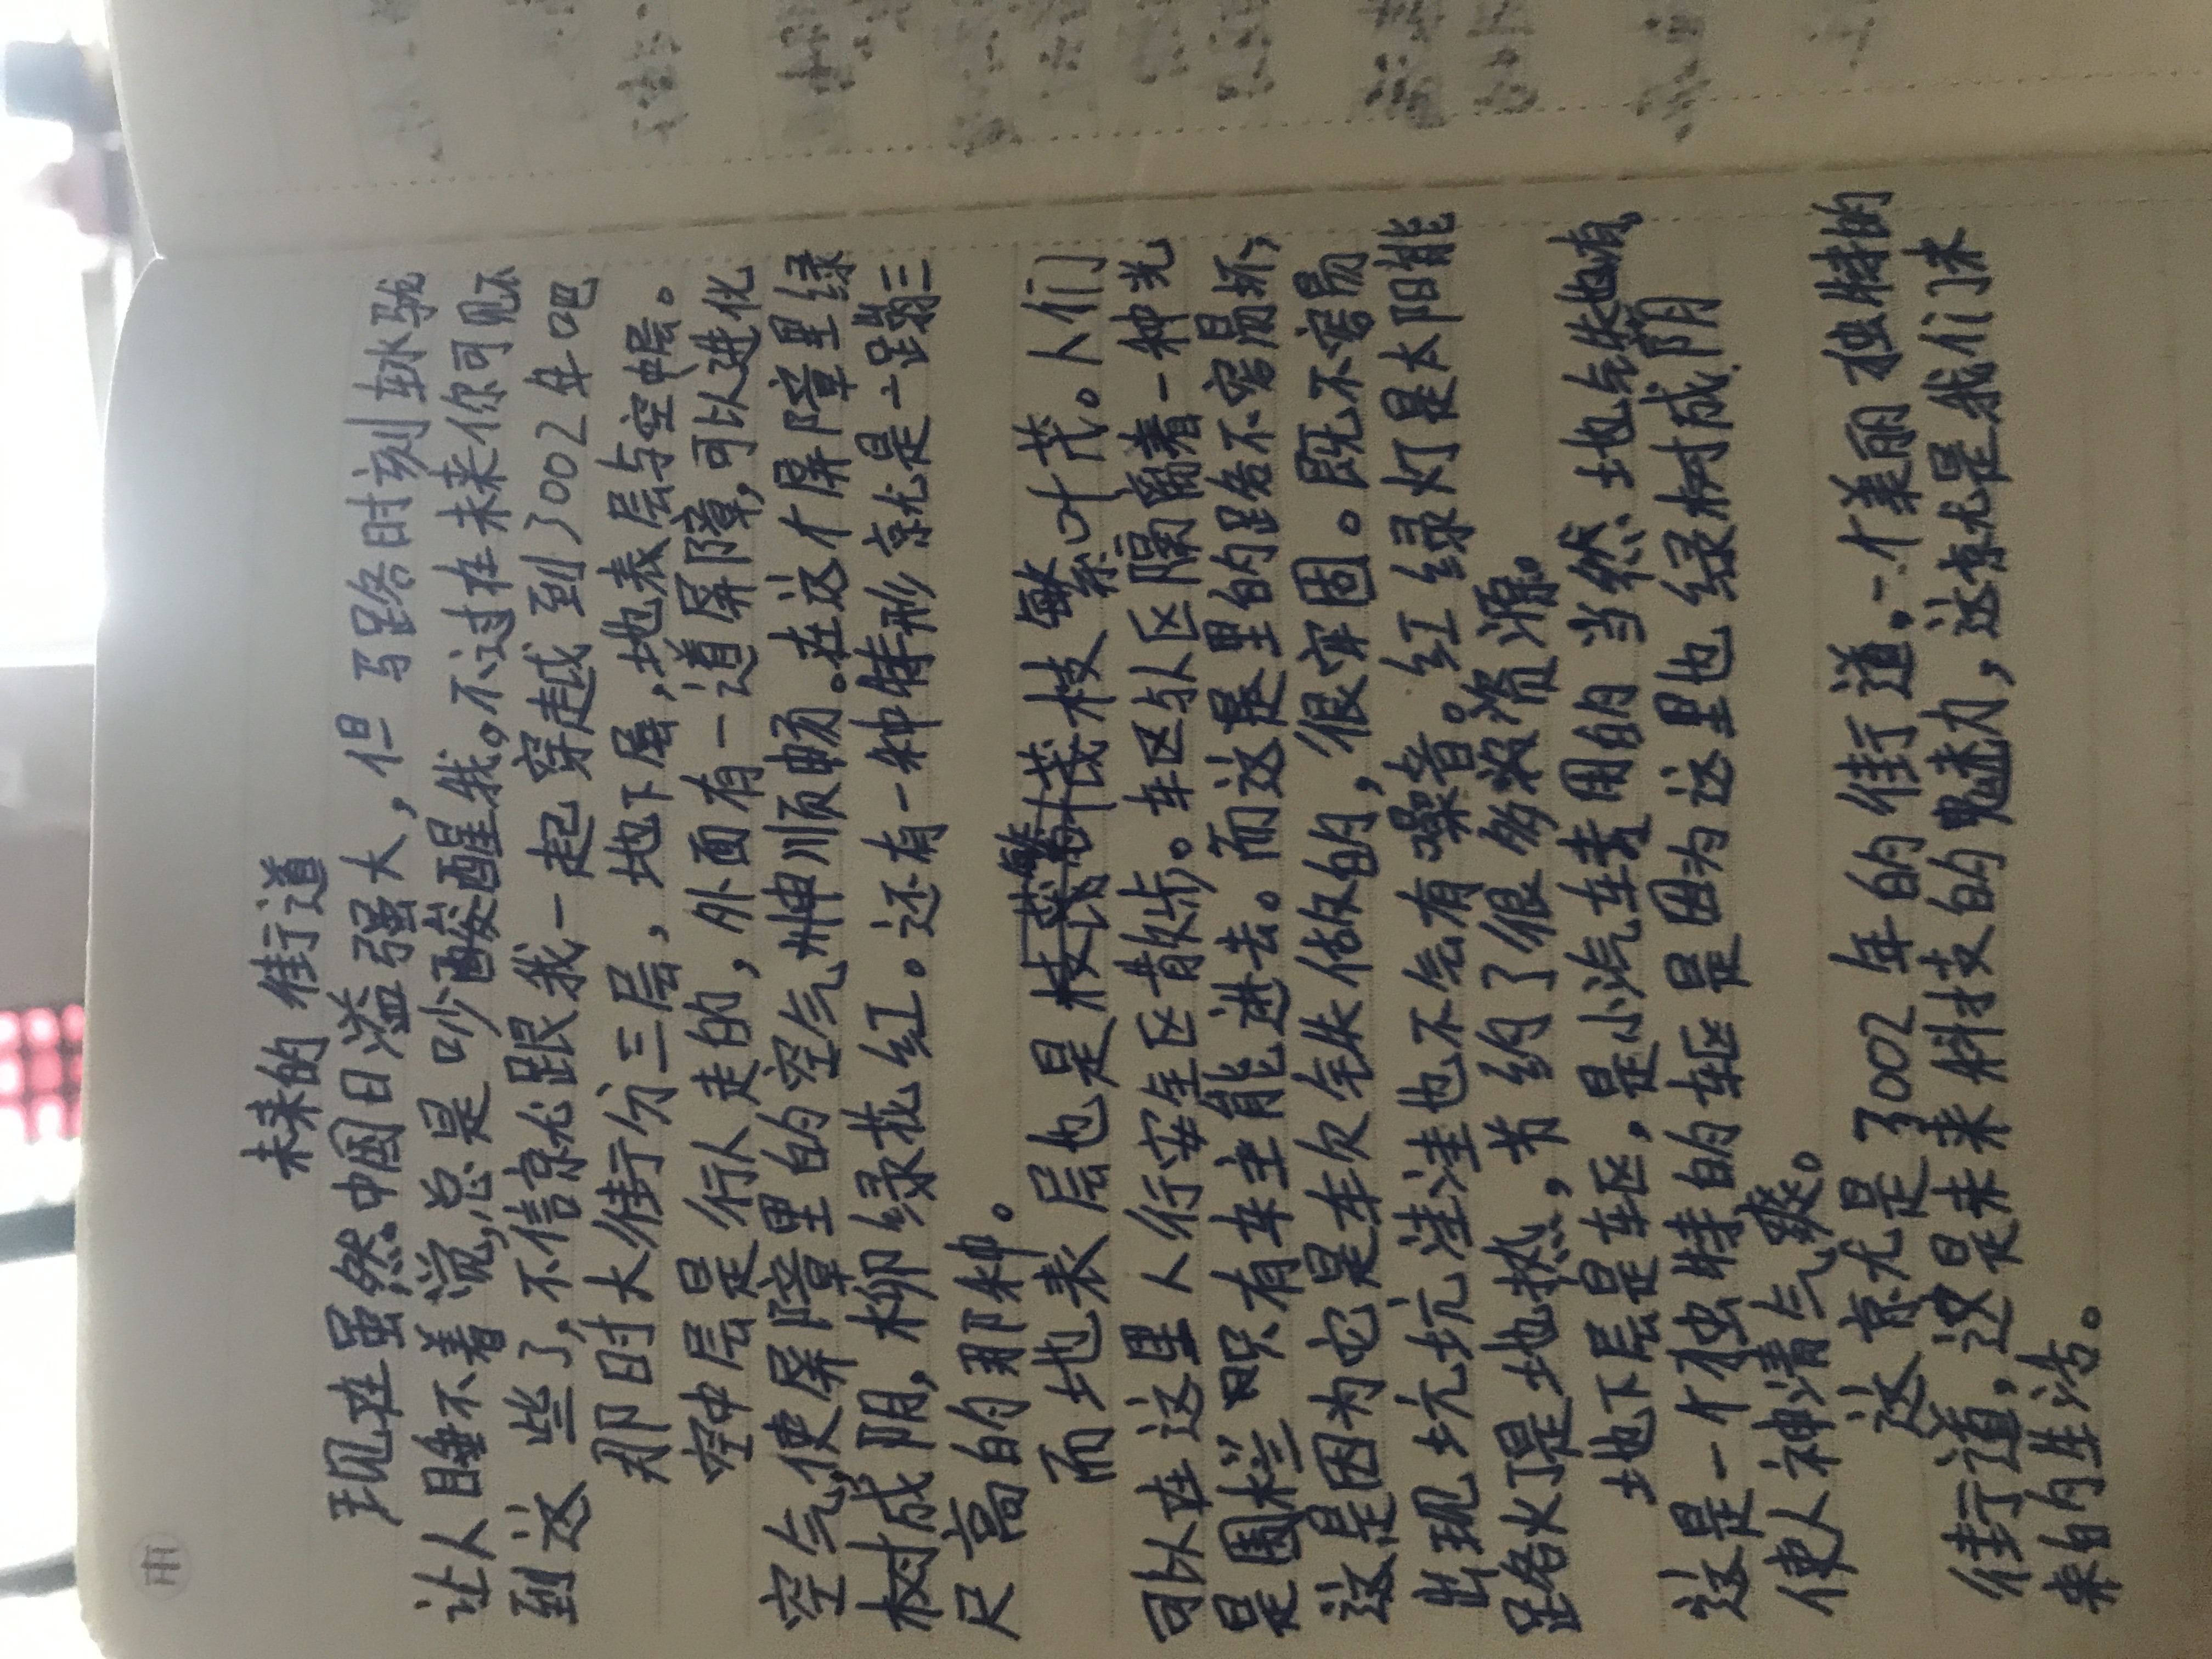 未来的街道
现在虽然中国日溢强大，但马路时刻轰鸣
让人睡不着觉，总是吵醒我。不过在未来你可见不
到这些了，不信就跟我一起穿越到3002年吧
那时大街分三层，地下层，地表层与空中层。
空中层是行人走的，外面有一道屏障，可以进化
空气，使屏障里的空气顺畅。在这个屏障里绿
树成阴，柳绿花红。还有一种特形就是一蹦三
尺高的那种。
而地表层也是枝繁叶茂。人们
可以在这里人行安全区散步。车区与人区隔离着一种光
是围栏，只有车主能进去。而这里的路不容易坏，
这是因为它是车欠铁做的，很牢固。既不容易
出现坑坑洼洼也不会有噪音。红绿灯是太阳能
路灯是地热，节约了很多资源。
地下层是车区，是小汽车专用的当然地铁也有，
这是一个独特的车区是因为这里也绿树成阴
使人神清气爽。
这就是3002年的街道。一个美丽独特的
街道，这是未来科技的魅力，这就是我们未
来的生活。